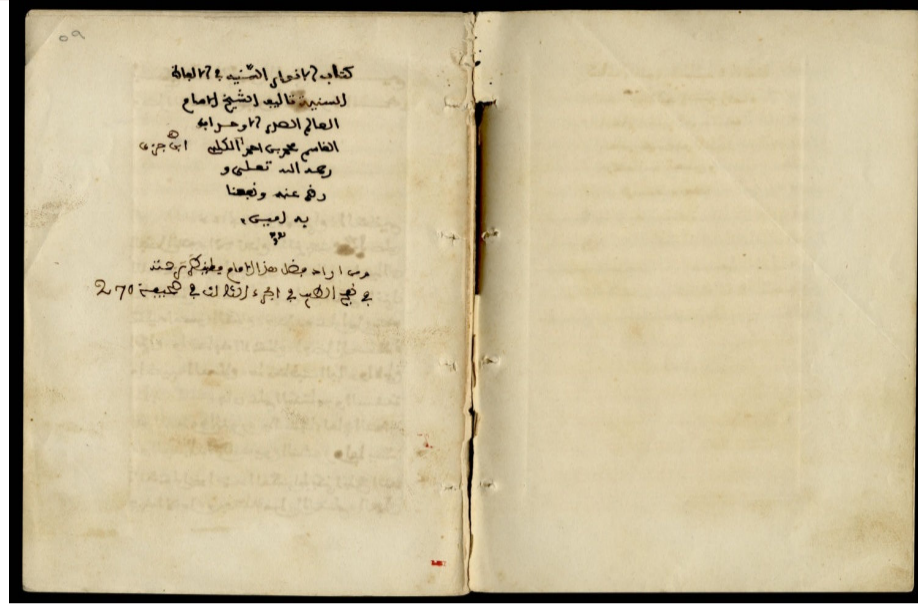 كتاب الانوار السنية في الالفاظ
السنية تاليف الشيخ الامام
العالم الصدر الاوحد ابي
القاسم محمد بن احمد الكلبي ابن جزي
رحمه الله تعلى و
رضي عنه ونفعنا
به امين
ومن اراد فضل هذا الامام فلينظر ترجمته
في نفح الطيب في الجزء الثالث في صحيفة 270